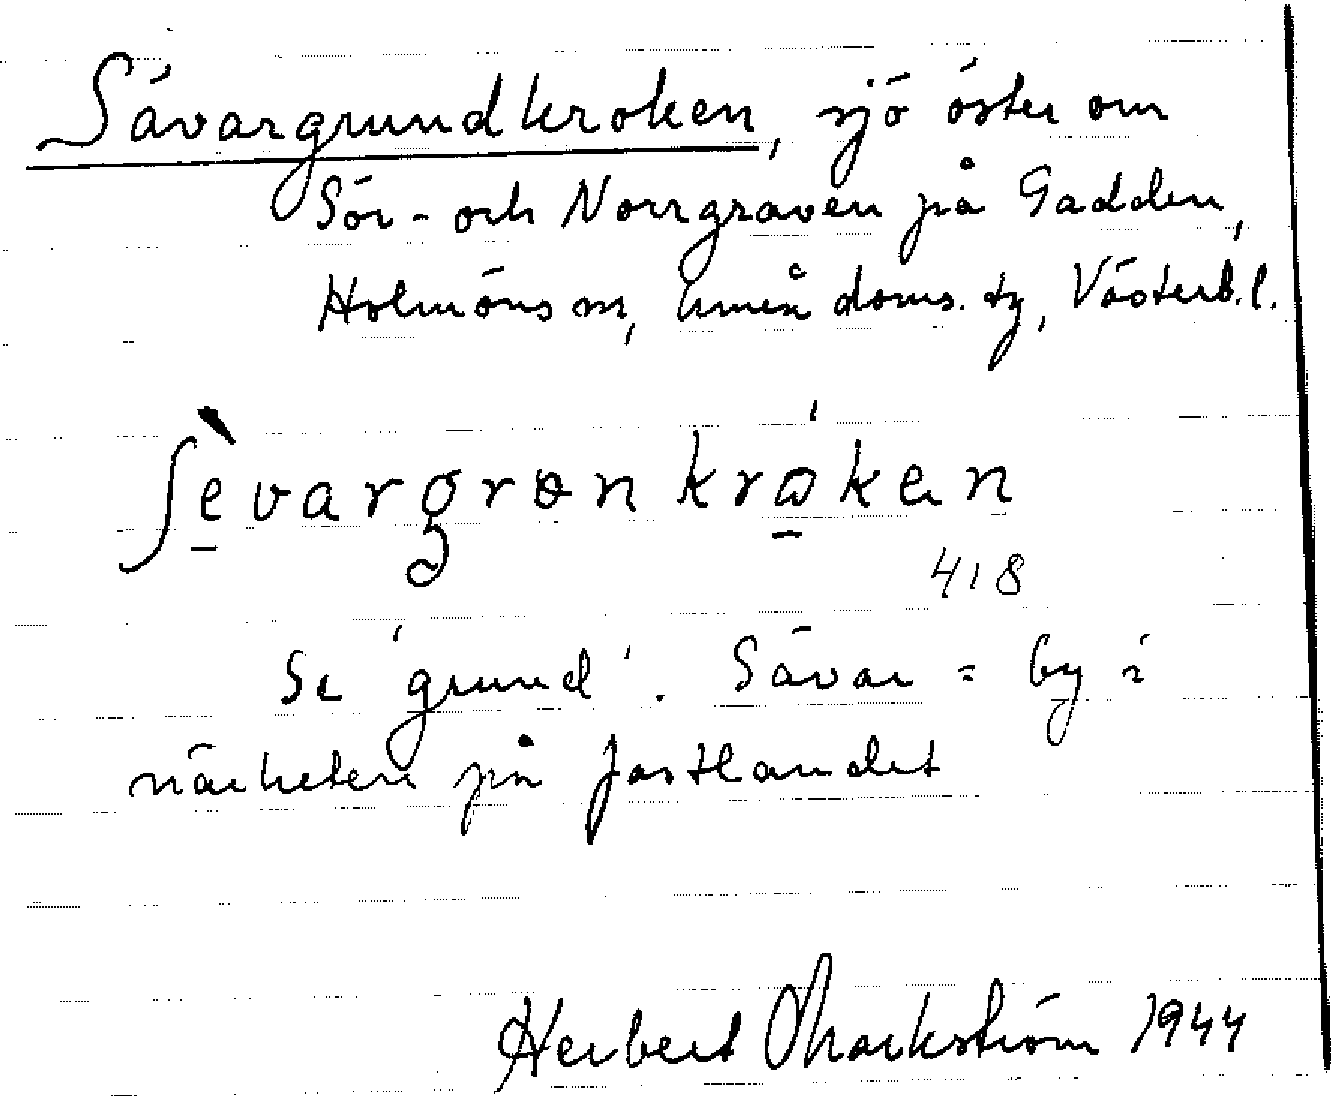 Sävargrundkroken, sjö öster om
Sör- och Norrgraven på Gadden,
Holmöns sn, Umeå doms. tg, Västerb. l.
ʃèvargrønkrókɐn
418
Se 'grund'. Sävar = by i
närheten på fastlandet
Herbert Markström 1944